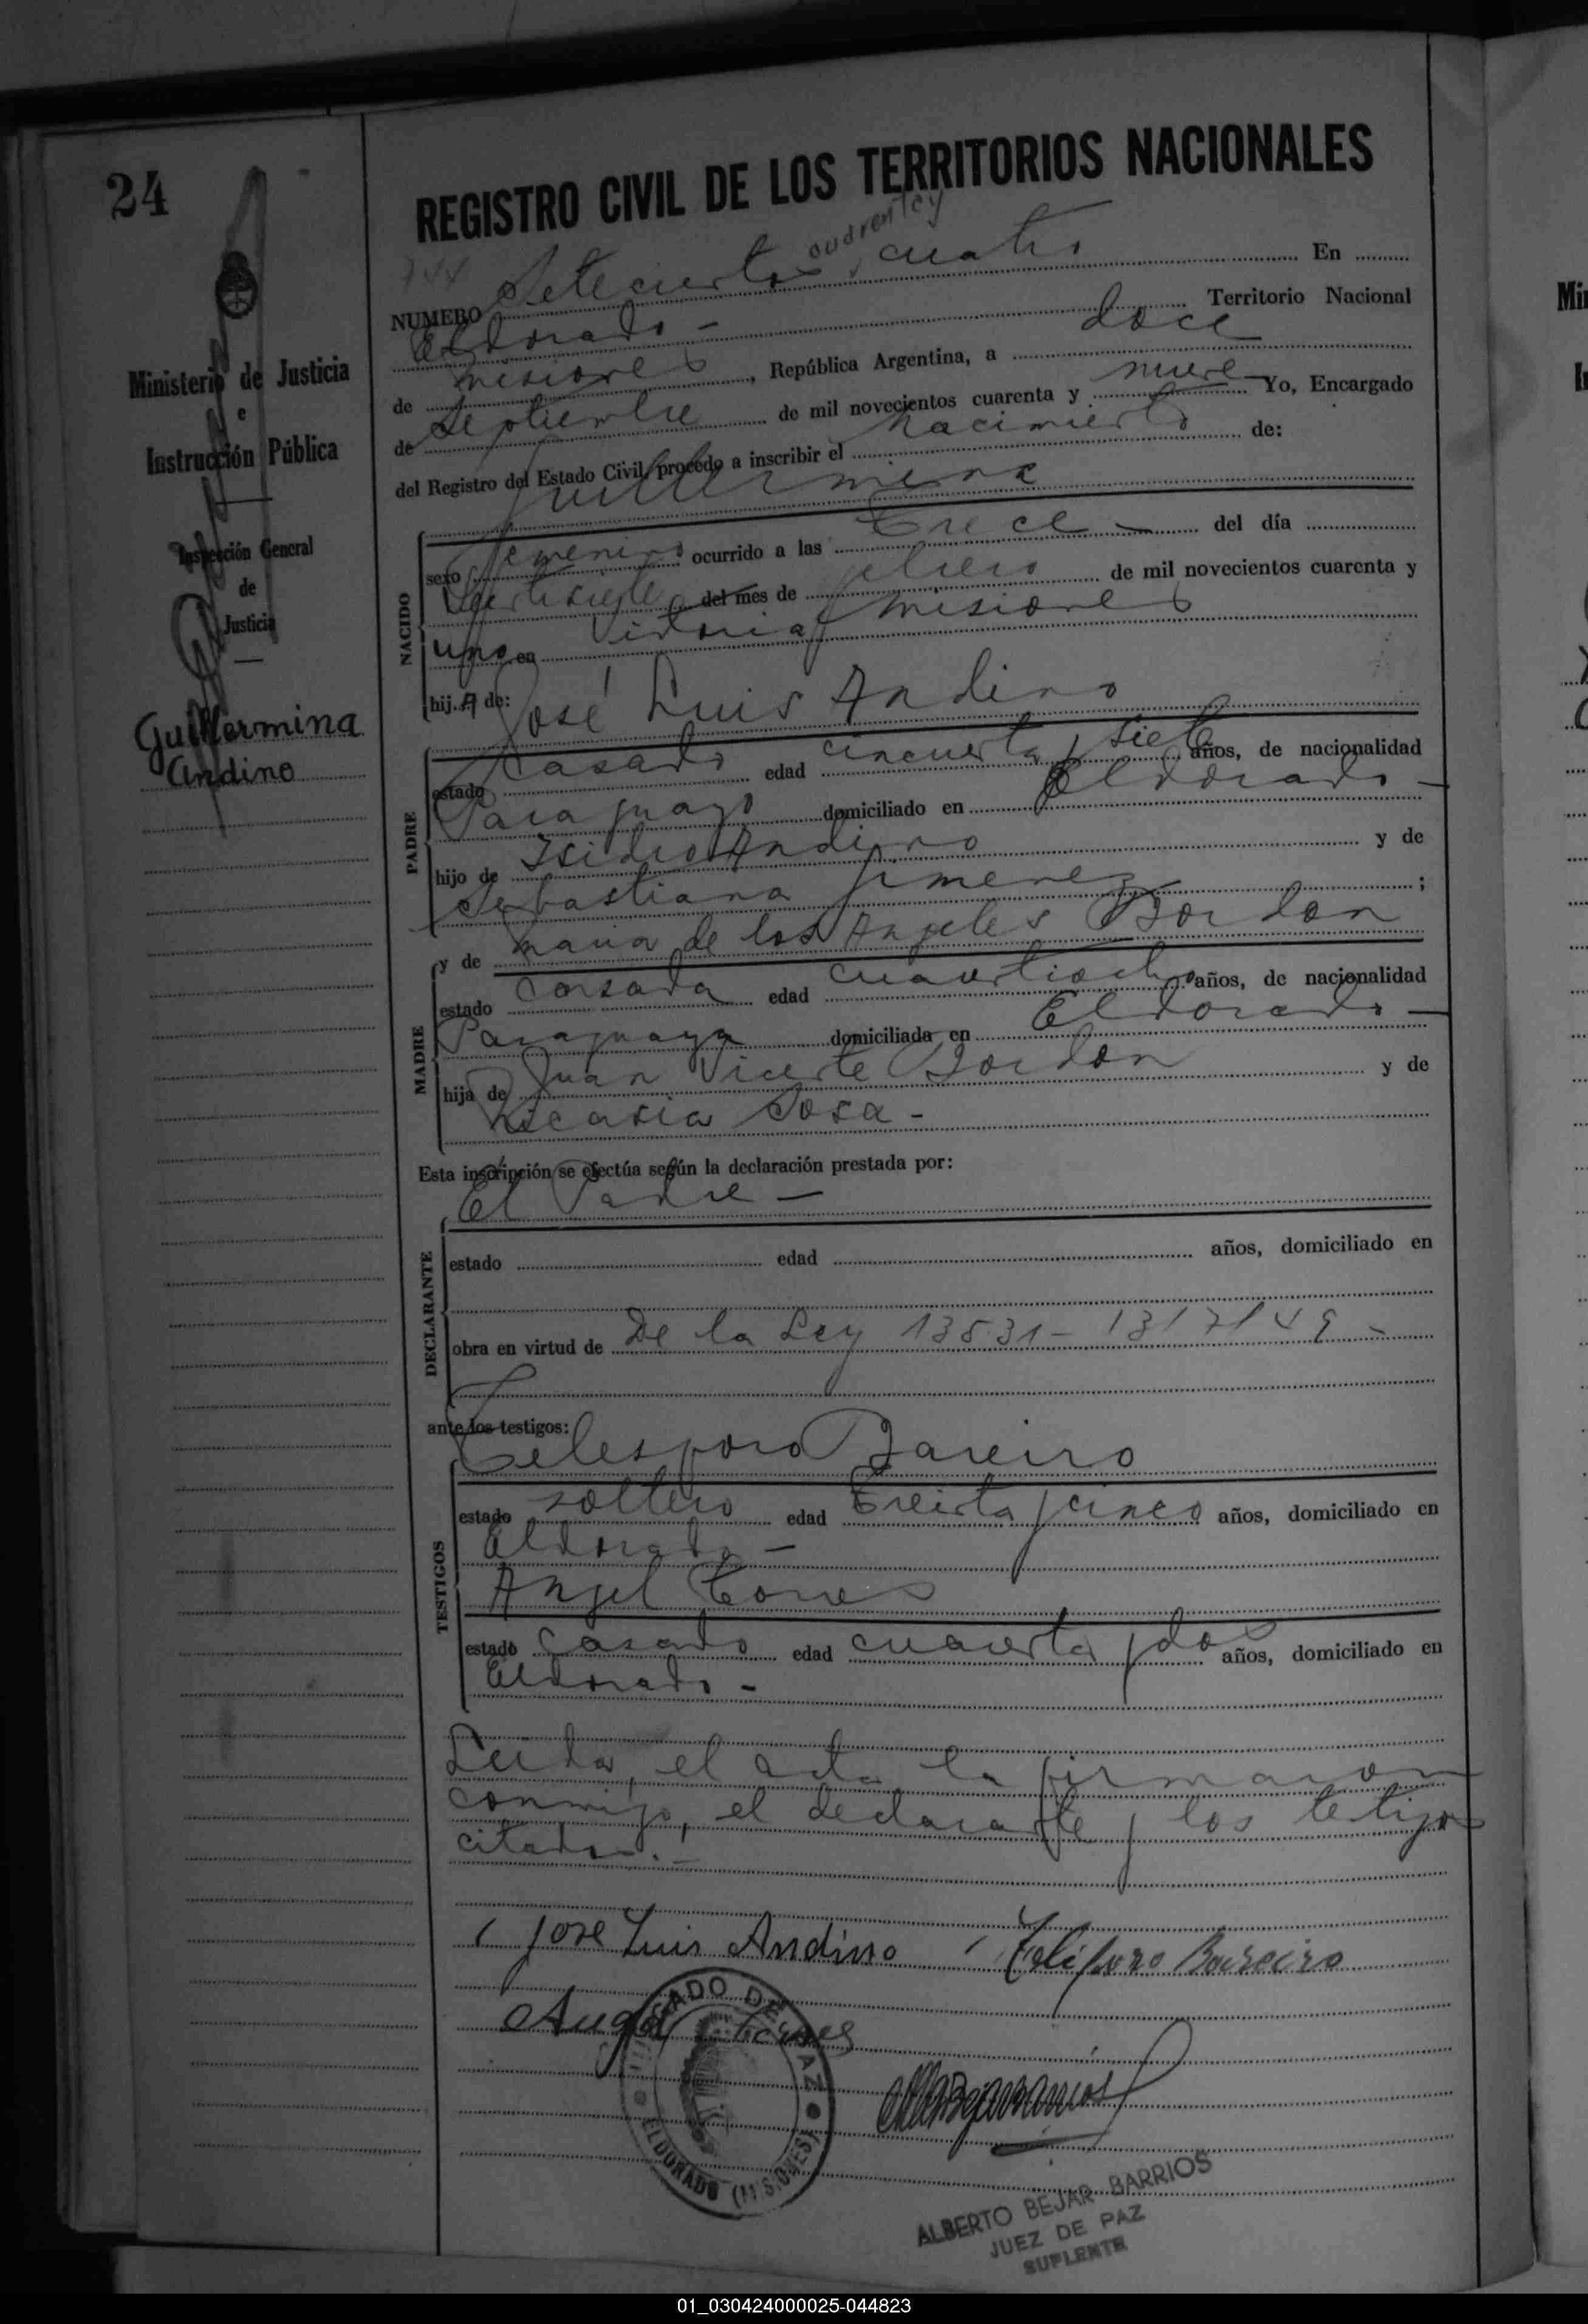 24
Ministerio de Justicia
e
Instrucción Pública
Inspección General
de
Justicia
Guillermina
Andino
REGISTRO CIVIL DE LOS TERRITORIOS NACIONALES
744
cuarenta y
NUMERO Setecientos cuatro En
Eldorado - Territorio Nacional
de Misiones, República Argentina, a doce
de Septiembre de mil novecientos cuarenta y nueve Yo, Encargado
del Registro del Estado Civil, procedo a inscribir el nacimiento de:
Guillermina
NACIDO
sexo femenino ocurrido a las trece - del día
veintisiete del mes de febrero de mil novecientos cuarenta y
uno en Victoria Misiones
hij.a de: José Luis Andino
PADRE
estado casado edad cincuenta y siete años, de nacionalidad
Paraguayo domiciliado en Eldorado -
hijo de Isidro Andino y de
Sebastiana Jimenez ;
y de Maria de los Angeles Bordon
MADRE
estado casada edad cuarentiocho años, de nacionalidad
Paraguaya domiciliada en Eldorado -
hija de Juan Vicente Bordon y de
Nicasia Sosa -
Esta inscripción se efectúa según la declaración prestada por:
El Padre -
DECLARANTE
estado edad años, domiciliado en
obra en virtud de De la Ley 13531 - 13/7/49 -
ante los testigos:
Telesforo Bareiro
TESTIGOS
estado soltero edad treinta y cinco años, domiciliado en
Eldorado -
Angel Torres
estado casado edad cuarenta y dos años, domiciliado en
Eldorado -
Leida, el acta la firmaron
conmigo, el declarante y los testigos
citados.-
Jose Luis Andino Telésforo Bareiro
Angel Torres
JUZGADO DE PAZ
ELDORADO (MISIONES)
ALBERTO BEJAR BARRIOS
JUEZ DE PAZ
SUPLENTE
Mi
01_030424000025-044823